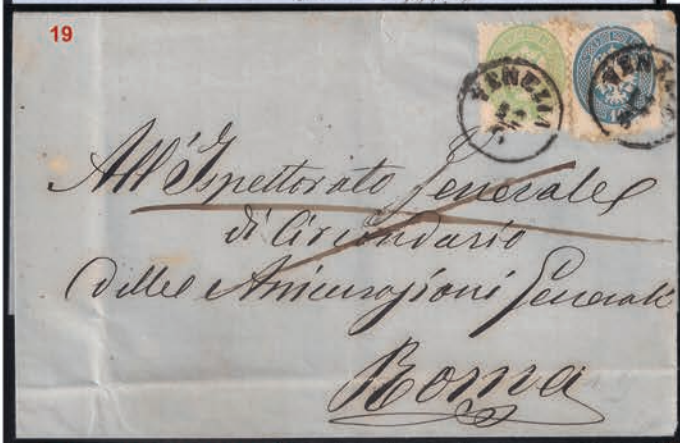 19
VENEZIA
VENEZ
All'Ispettorato Generale
di Circondario
delle Assicurazioni Generali
Roma